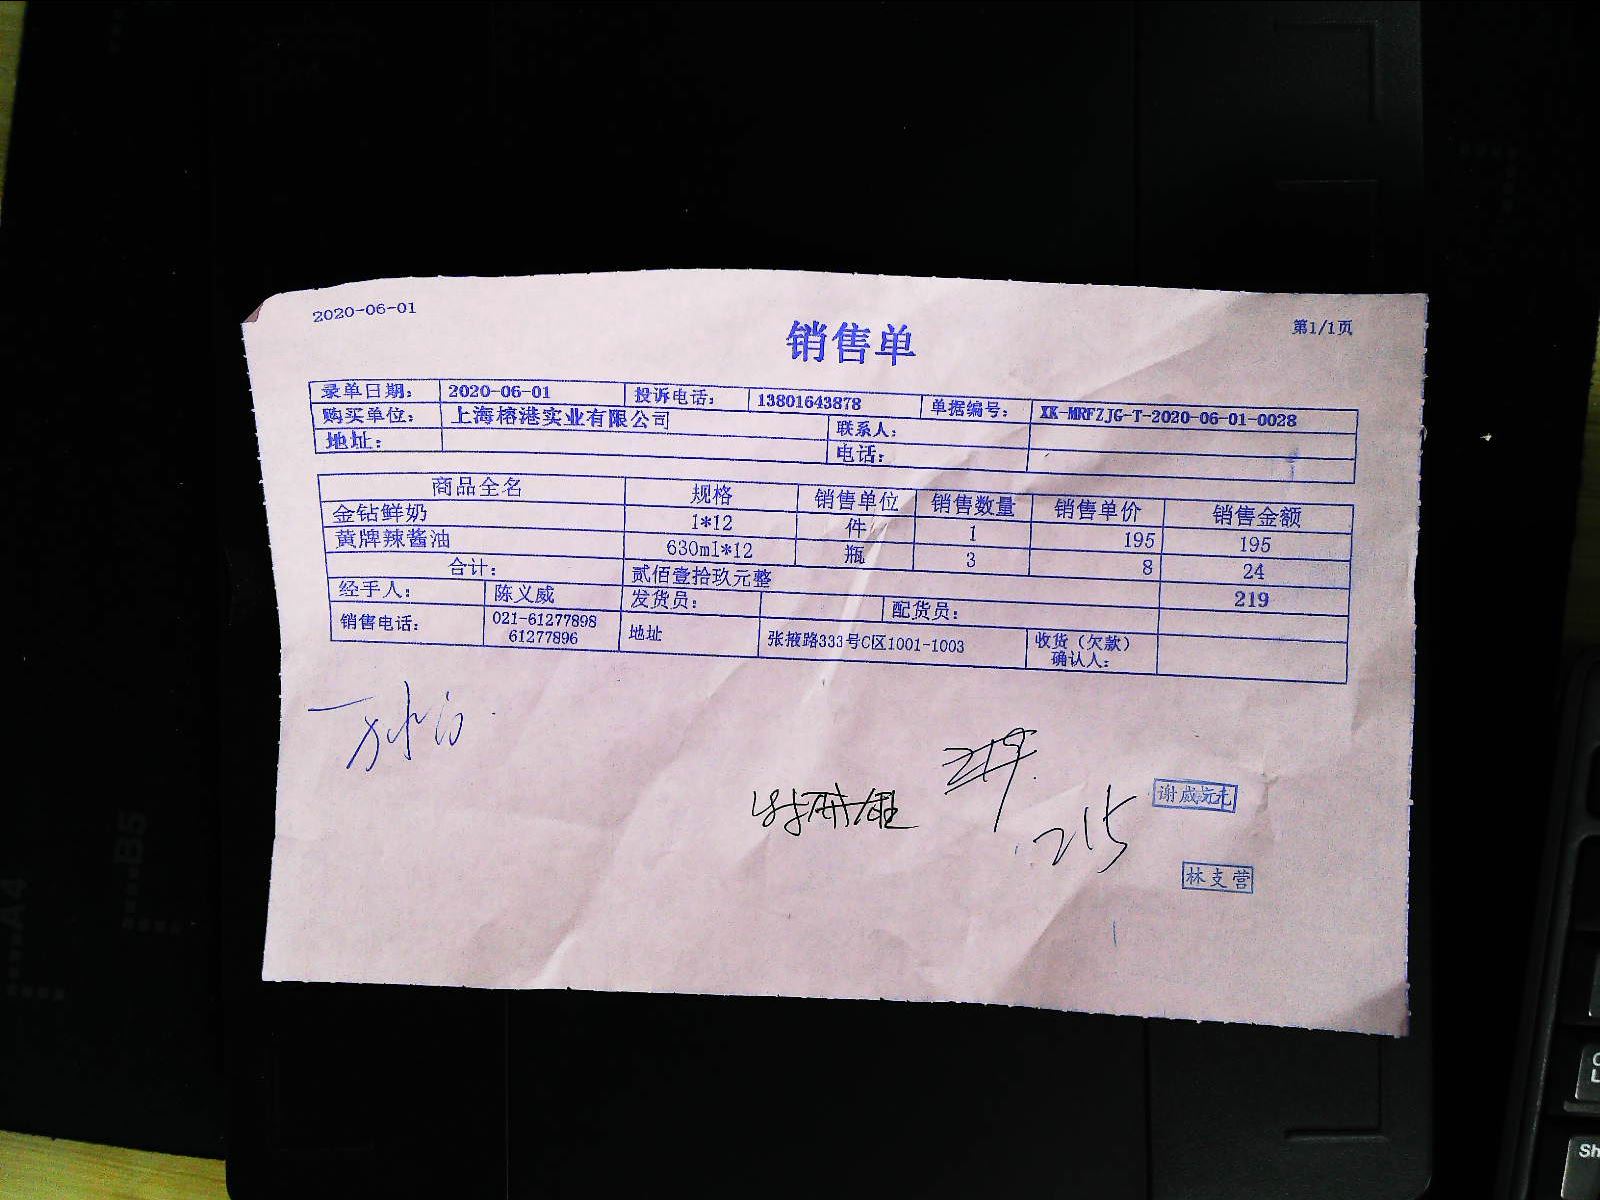 2020-06-01
销售单
第1/1页
录单日期： 2020-06-01 投诉电话： 13801643878 单据编号： XK-MRFZJG-T-2020-06-01-0028
购买单位： 上海榕港实业有限公司 联系人：
地址： 电话：
商品全名 规格 销售单位 销售数量 销售单价 销售金额
金钻鲜奶 1*12 件 1 195 195
黄牌辣酱油 630ml*12 瓶 3 8 24
合计： 贰佰壹拾玖元整 219
经手人： 陈义威 发货员： 配货员：
销售电话： 021-61277898 61277896 地址 张掖路333号C区1001-1003 收货（欠款）确认人：
215
林支营
A4
B5